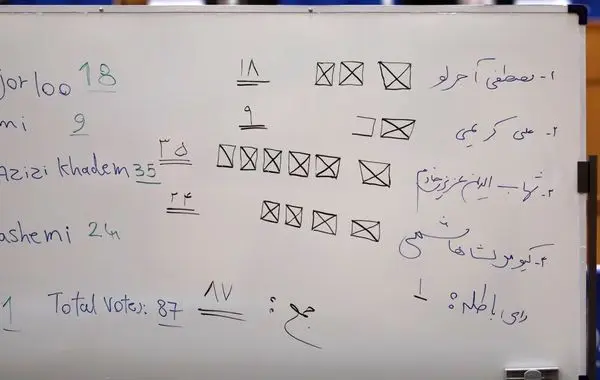 ۱- مصطفی آجرلو ۱۸
jorloo 18
۲- علی کریمی ۹
mi 9
۳- شهاب الدین عزیزی خادم ۳۵
Azizi Khadem 35
۴- کیومرث هاشمی ۲۴
ashemi 24
رای باطله : ۱
جمع : ۸۷
1 Total Votes: 87